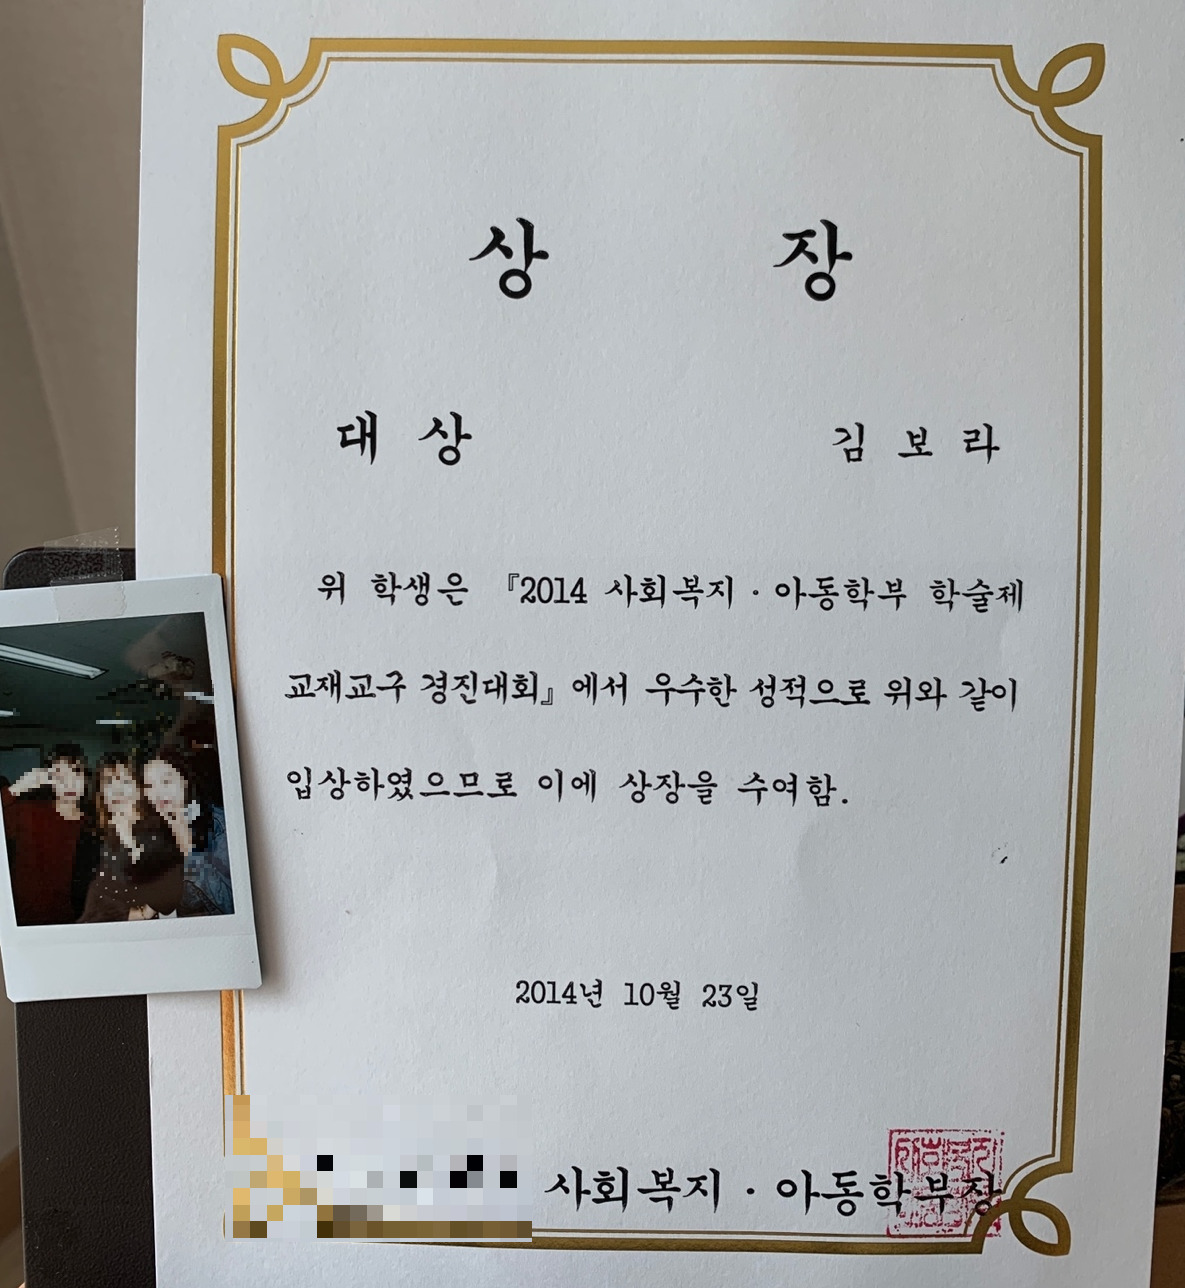 상 장
대 상 김 보 라
위 학생은 『2014 사회복지·아동학부 학술제
교재교구 경진대회』에서 우수한 성적으로 위와 같이
입상하였으므로 이에 상장을 수여함.
2014년 10월 23일
사회복지·아동학부장